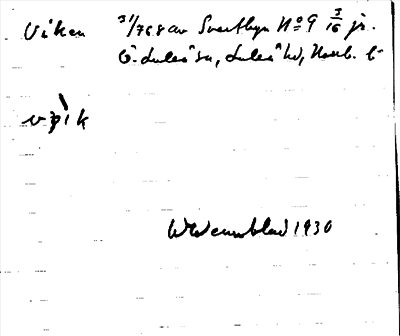 Viken 31/768 av Svartbyn No 9 3/16 jr.
Ö. Luleå sn, Luleå hd, Norrb. l.
Wennerblad 1930